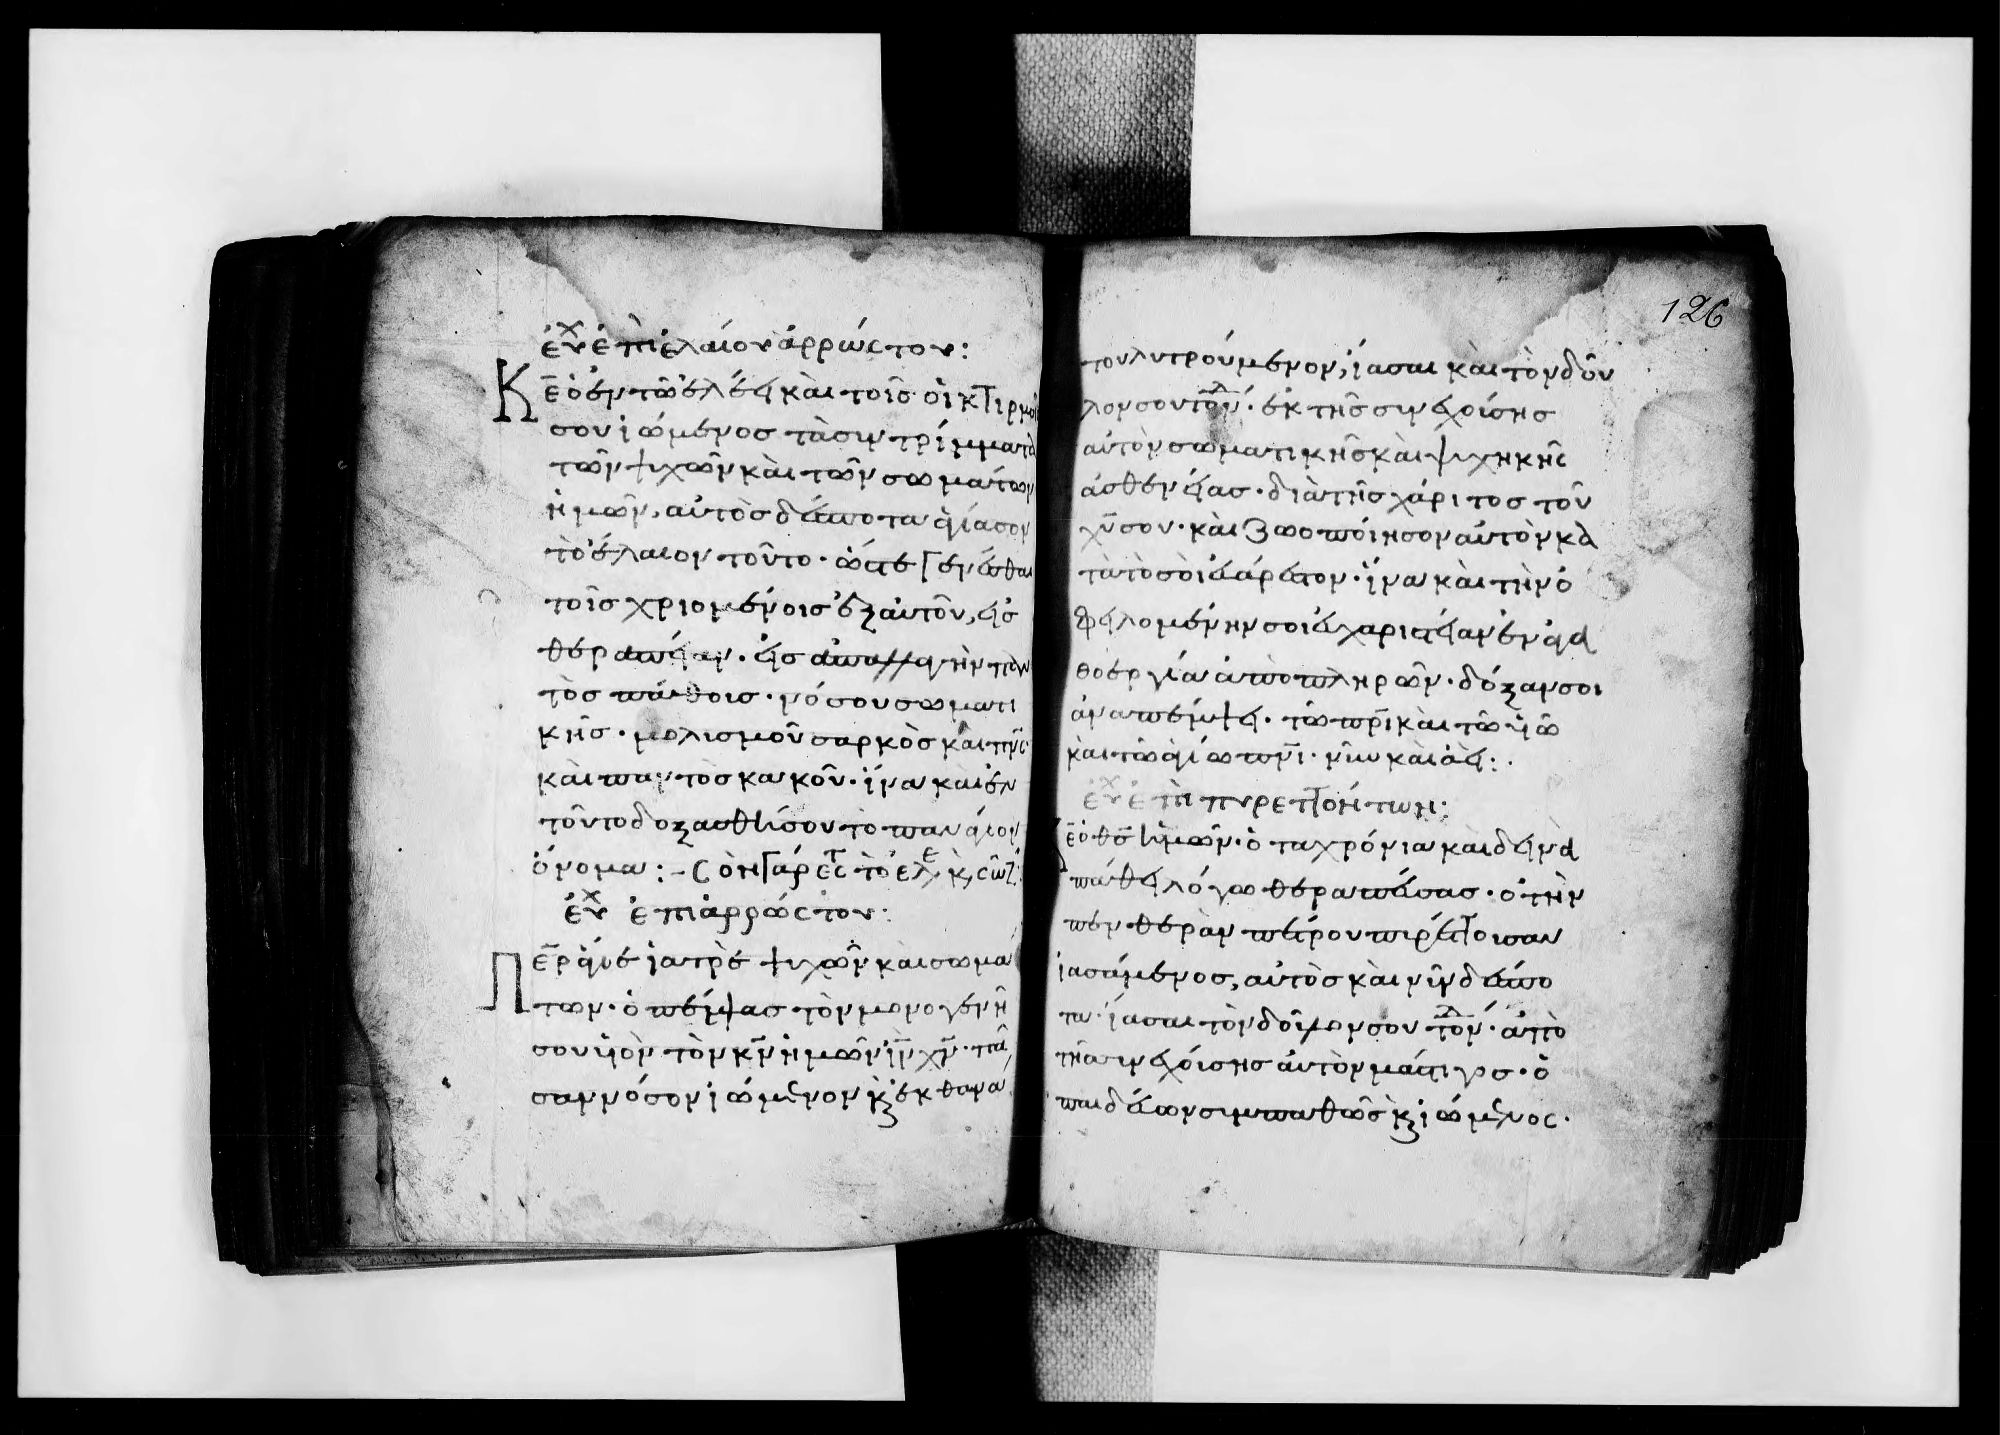 εὐχ ἐπὶ ἐλαίου ἀρρώστου:
Κε̄ ὁ ἐν τῶ ἐλέει καὶ τοῖσ οἰκτιρμοῖ
σου ἰώμενοσ τὰ συντρίμματα
τῶν ψυχῶν καὶ τῶν σωμάτων
ἡμῶν, αὐτὸσ δέσποτα ἁγίασον
τὸ ἔλαιον τοῦτο· ὥστε γενέσθαι
τοῖσ χριομένοισ ἐξ αὐτοῦ, εἰσ
θεραπείαν· εἰσ ἀπαλλαγὴν παν
τὸσ πάθοισ· νόσου σωματι
κῆσ· μολισμοῦ σαρκὸσ καὶ πν̄ς
καὶ παντὸσ κακοῦ· ἵνα καὶ ἐν
τούτο δοξασθήσου τὸ πανάγιον
ὄνομα:– Σὸν γάρ ἐστ τὸ ἐλε κ, σῶζ
εὐχ ἐπὶ ἀρρώστου:
Περ̄ ἅγιε ἰατρὲ ψυχῶν καὶ σωμα
των· ὁ πέμψασ τὸν μονογενῆ
σου υἱὸν τὸν κν̄ ἡμῶν ιν̄ χν̄· πᾶ
σαν νόσον ἰώμενον κ ἐκ θανά
126
του λυτρούμενον, ἴασαι καὶ τὸν δοῦ
λον σου τόνδ· ἐκ τῆσ συνεχοίσησ
αὐτὸν σωματικῆσ καὶ ψυχηκῆς
ἀσθενείασ· διὰ τῆσ χάριτοσ τοῦ
χῡ σου· καὶ ζωοποίησον αὐτὸν κα
τὰ τὸ σοὶ εὐάρεστον· ἵνα καὶ τὴν ὀ
φειλομένην σοι εὐχαριστείαν ἐν ἀγα
θοεργία ἀποπληρῶν· δόξαν σοι
ἀναπέμψει· τῶ πρ̄ι καὶ τῶ υἱῶ
καὶ τῶ ἁγίω πν̄ι· νῦν καὶ ἀεὶ:·
εὐχ ἐπὶ πυρεττόντων:
ε̄ ὁ θς̄ ἡμῶν· ὁ τα χρόνια καὶ δεινὰ
πάθει λόγω θεραπεύσασ· ὁ τὴν
πενθερὰν πέτρου πιρέττοισαν
ἰασάμενοσ, αὐτὸσ καὶ νῦν δέσπο
τα· ἴασαι τὸν δοῦλον σου τόνδ· ἀπὸ
τῆσ συνεχόισησ αὐτὸν μάστιγοσ· ὁ
παιδεύων συμπαθῶσ κ ἰώμενος·